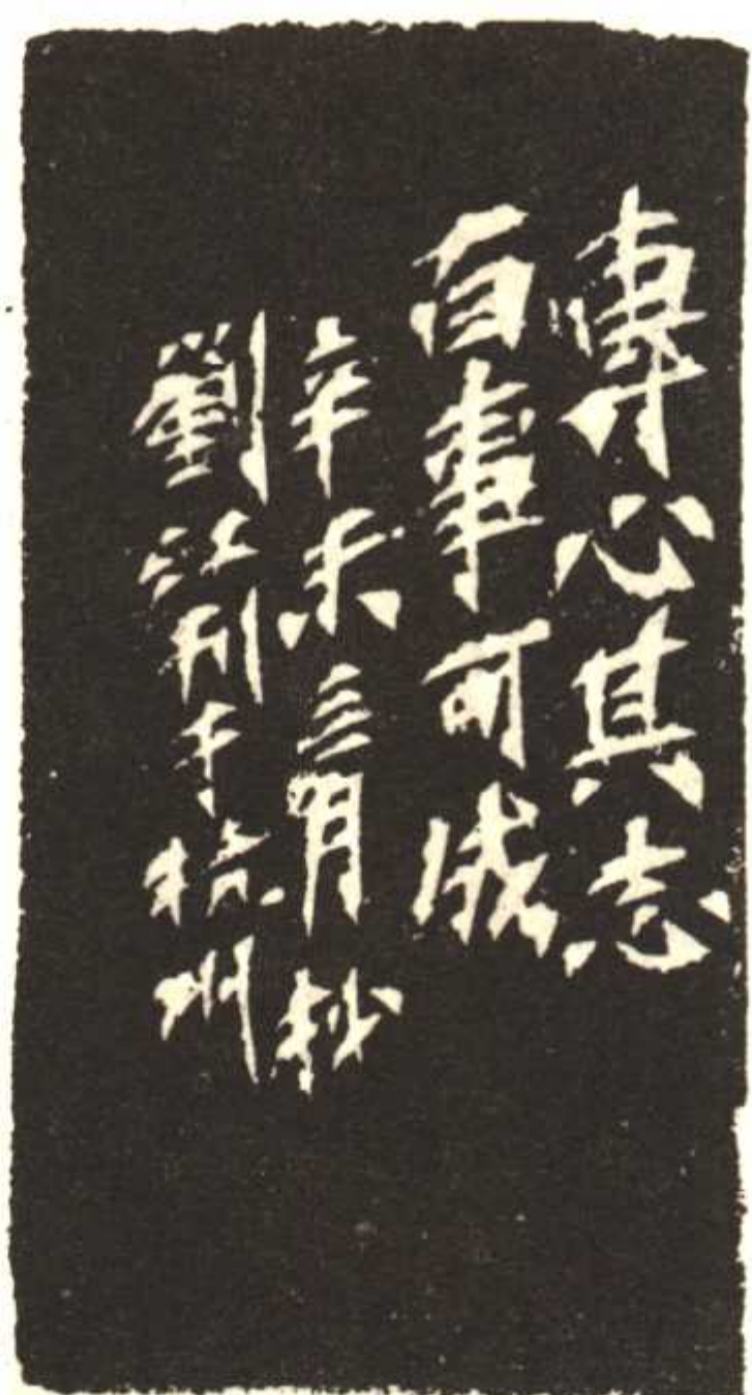 專心其志
百事可成
辛未三月杪
劉江刊于杭州